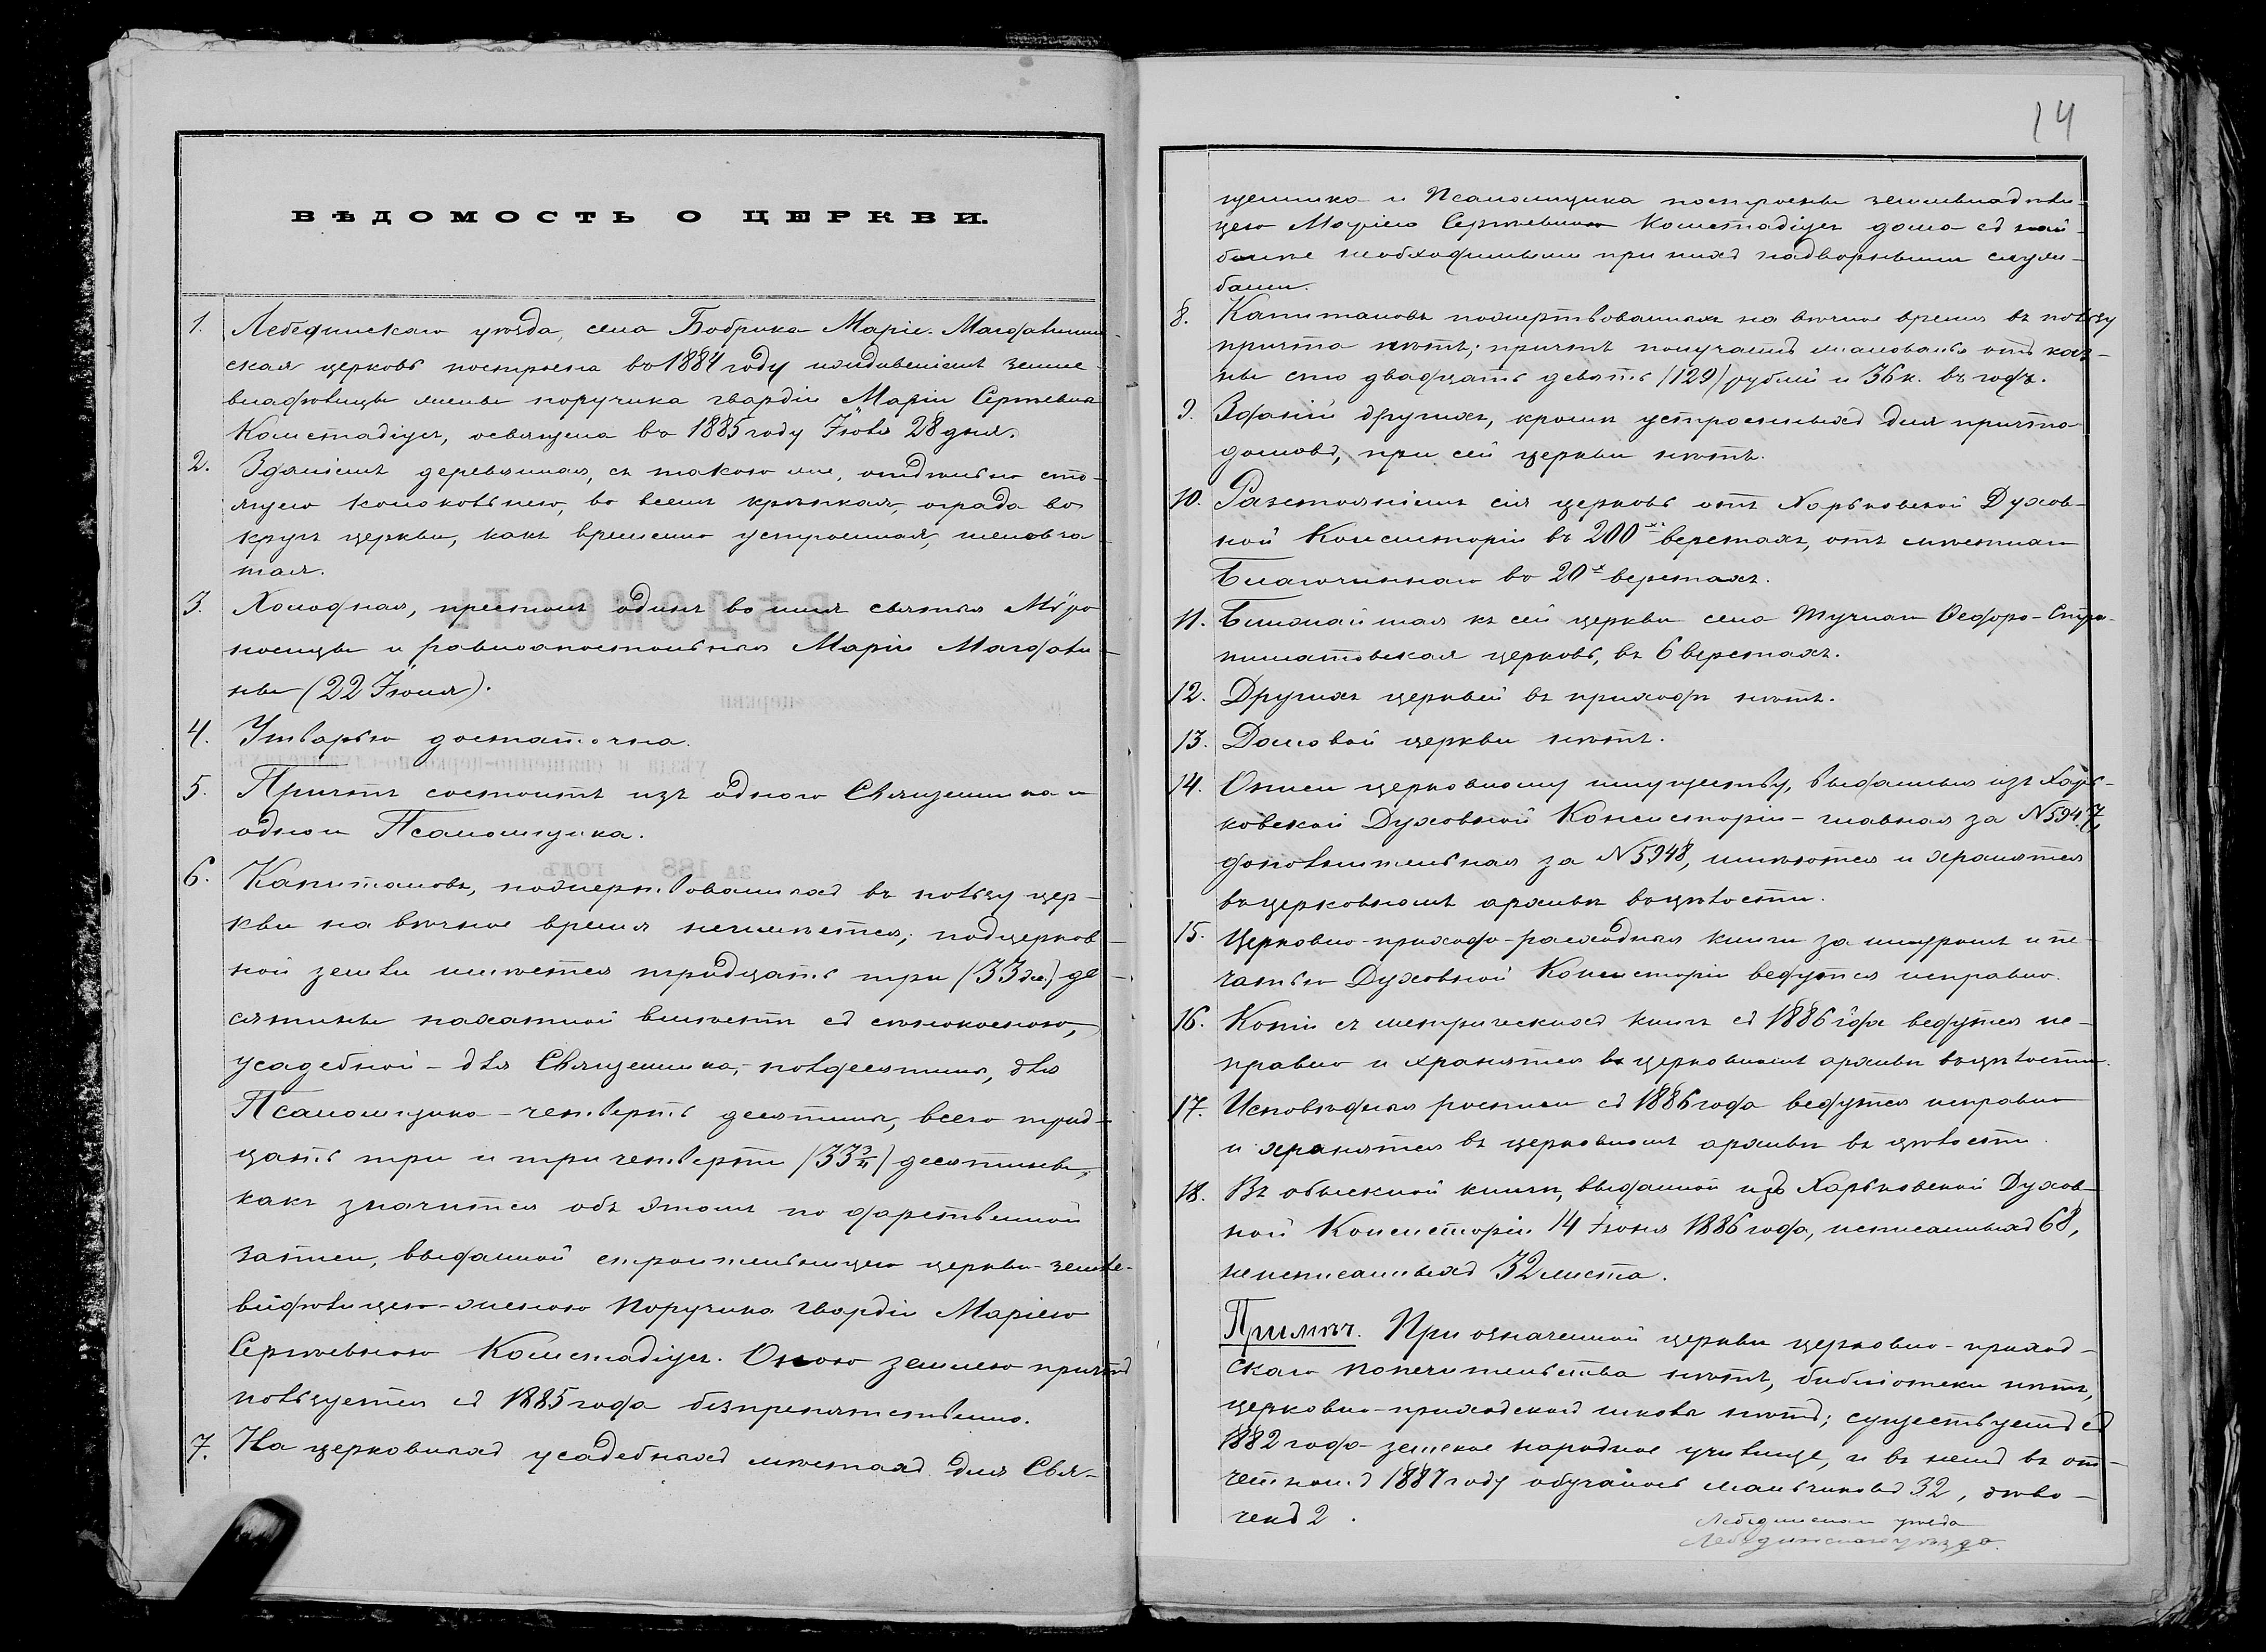 14
ВѢДОМОСТЬ О ЦЕРКВИ.
1. Лебединскаго уѣзда, села Бобрика Маріе-Магдалинин-
ская церковь построена въ 1884 году иждивеніемъ земле-
владѣлицы жены поручика гвардіи Маріи Сергѣевны
Комстадіусъ, освящена въ 1885 году Іюля 28 дня.
2. Зданіемъ деревянная, съ такою же, отдѣльно сто-
ящею колокольнею, во всемъ крѣпкая, ограда во
кругъ церкви, какъ временно устроенная, шелева
тая.
3. Холодная, престолъ одинъ во имя святыя Мѵро
носицы и равноапостольныя Маріи Магдали-
ны (22 Іюля).
4. Утварью достаточна.
5. Причтъ состоитъ изъ одного Священника и
одного Псаломщика.
6. Капиталовъ, пожертвованныхъ въ пользу цер-
кви на вѣчное время неимѣется; подцерков-
ной земли имѣется тридцать три (33 де.) де-
сятины пахатной вмѣстѣ съ сѣнокосною,
усадебной - для Священника, - полдесятины, для
Псаломщика - четверть десятины, всего трид-
цать три и три четверти (33 3/4) десятины,
какъ значится объ этомъ по дарственной
записи, выданной строительницею церкви - земле-
владѣлицею - женою Поручика гвардіи Маріею
Сергѣевною Комстадіусъ. Оною землею причтъ
пользуется съ 1885 года безпрепятственно.
7. На церковныхъ усадебныхъ мѣстахъ для Свя-
щенника и Псаломщика построены землевладѣли-
цею Маріею Сергѣевною Комстадіусъ дома съ
необходимыми при нихъ надворными служ-
бами.
8. Капиталовъ пожертвованныхъ на вѣчное время въ пользу
причта нѣтъ; причтъ получаетъ жалованье отъ каз-
ны сто двадцать девять (129) рублей и 36 к. въ годъ.
9. Зданій другихъ, кромѣ устроенныхъ для причта
домовъ, при сей церкви нѣтъ.
10. Разстояніемъ сія церковь отъ Харьковской Духов-
ной Консисторіи въ 200 хъ верстахъ, отъ мѣстнаго
Благочиннаго во 20 х верстахъ.
11. Ближайшая къ сей церкви села Тучнаго Ѳеодоро-Стра-
тилатовская церковь, въ 6 верстахъ.
12. Другихъ церквей въ приходѣ нѣтъ.
13. Домовой церкви нѣтъ.
14. Описи церковному имуществу, выданныя изъ Харь-
ковской Духовной Консисторіи - главная за № 5947,
дополнительная за № 5948, имѣются и хранятся
въ церковномъ архивѣ въ цѣлости.
15. Церковно-приходо-расходныя книги за шнуромъ и пе-
чатью Духовной Консисторіи ведутся исправно.
16. Копіи съ метрическихъ книгъ съ 1886 года ведутся ис-
правно и хранятся въ церковномъ архивѣ въ цѣлости.
17. Исповѣдныя росписи съ 1886 года ведутся исправно
и хранятся въ церковномъ архивѣ въ цѣлости.
18. Въ обыскной книгѣ, выданной изъ Харьковской Духов-
ной Консисторіи 14 Іюня 1886 года, исписанныхъ 68,
неисписанныхъ 32 листа.
Примѣч. При означенной церкви церковно-приход-
скаго попечительства нѣтъ, библіотеки нѣтъ,
церковно-приходской школы нѣтъ; существуетъ съ
1882 года - земское народное училище, и въ немъ въ от-
четномъ 1887 году обучалось мальчиковъ 32, дѣво-
чекъ 2.
Лебединскаго уѣзда
Лебединскаго уѣзда.